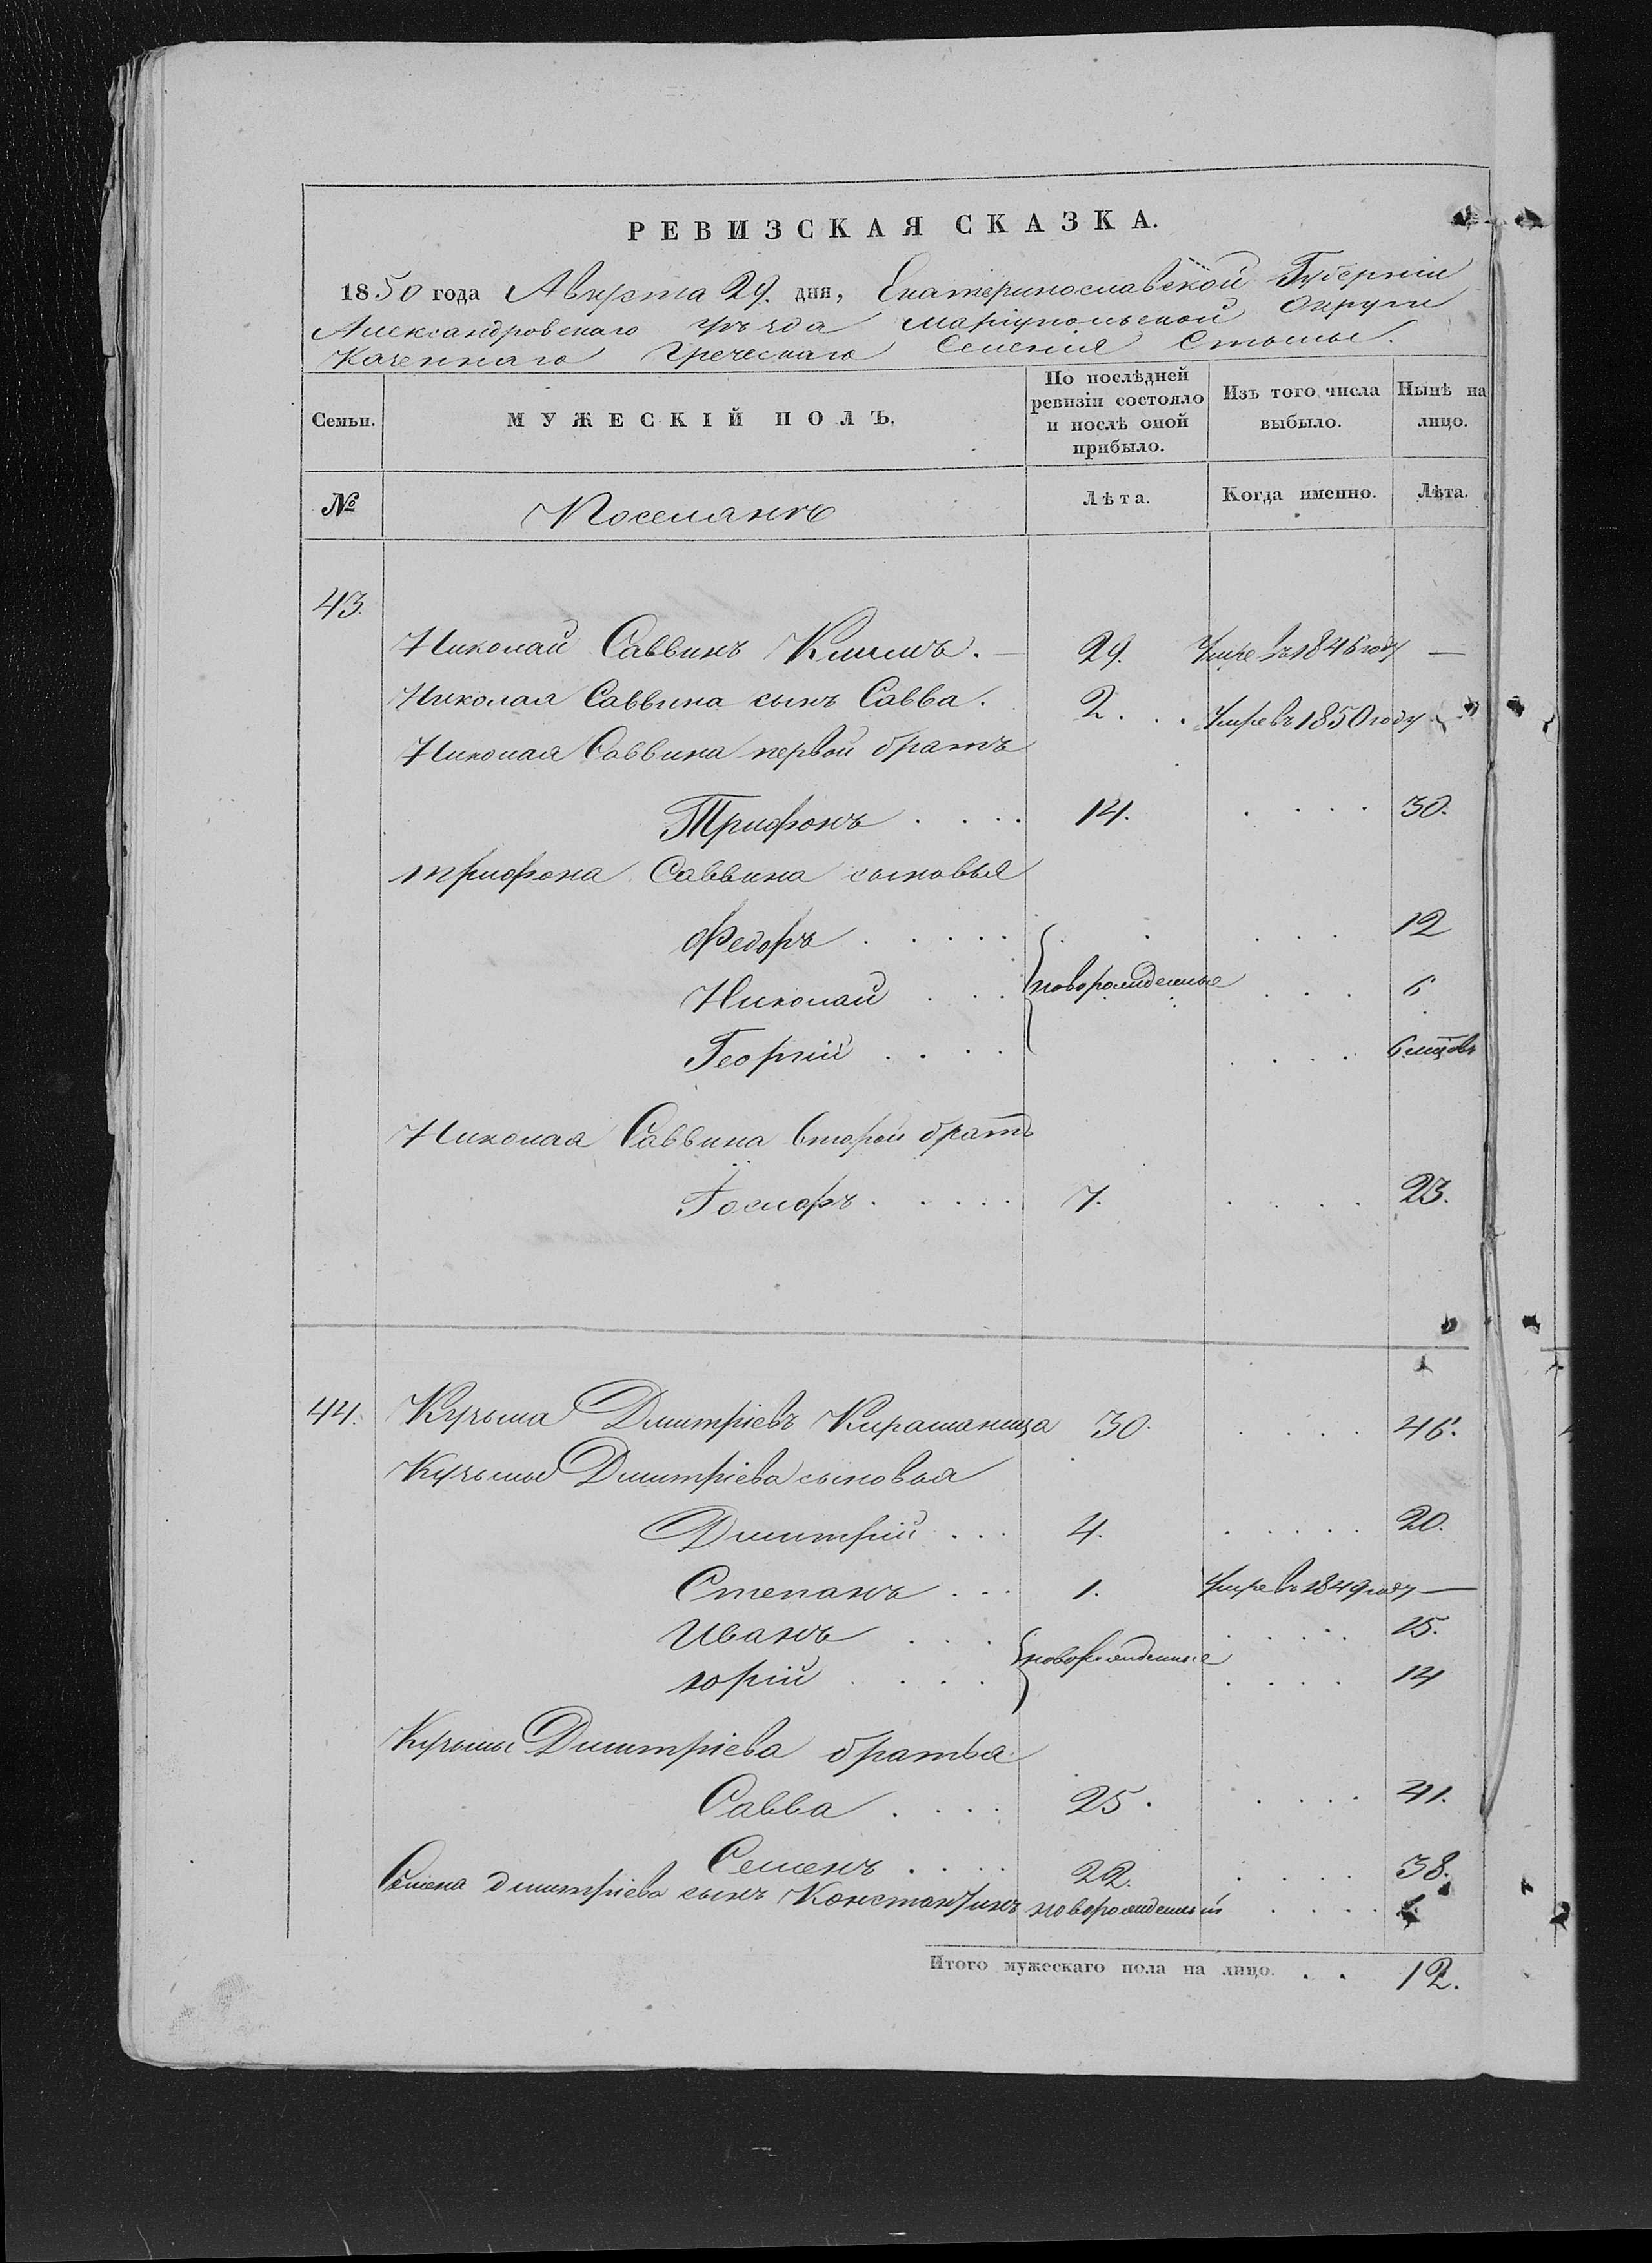 РЕВИЗСКАЯ СКАЗКА.
1850 года Августа 29. дня, Екатеринославской Губерніи
Александровскаго уѣзда Маріупольской Округи
Казеннаго Греческаго Селенія Стылы.
Семьи. МУЖЕСКІЙ ПОЛЪ. По послѣдней ревизіи состояло и послѣ оной прибыло. Изъ того числа выбыло. Нынѣ на лицо.
№ Поселянъ Лѣта. Когда именно. Лѣта.
43.
Николай Саввинъ 29. Умре въ 1846 году —
Николая Саввина сынъ Савва. 2. Умре въ 1850 году
Николая Саввина первой братъ
Трифонъ 14. 30.
Трифона Саввина сыновья
Федоръ 12
Николай новорожденные 6
Георгій 6 мцовъ
Николая Саввина второй братъ
Іосифъ 7. 23.
44. Кузьма Дмитріевъ 30. 46.
Кузьмы Дмитріева сыновья
Дмитрій 4. 20.
Степанъ 1. Умре въ 1849 году —
Иванъ 15.
Юрій новорожденные 14
Кузьмы Дмитріева братья
Савва 25. 41.
Семенъ 22. 38.
Семена Дмитріева сынъ Константинъ новорожденный
Итого мужескаго пола на лицо. 12.